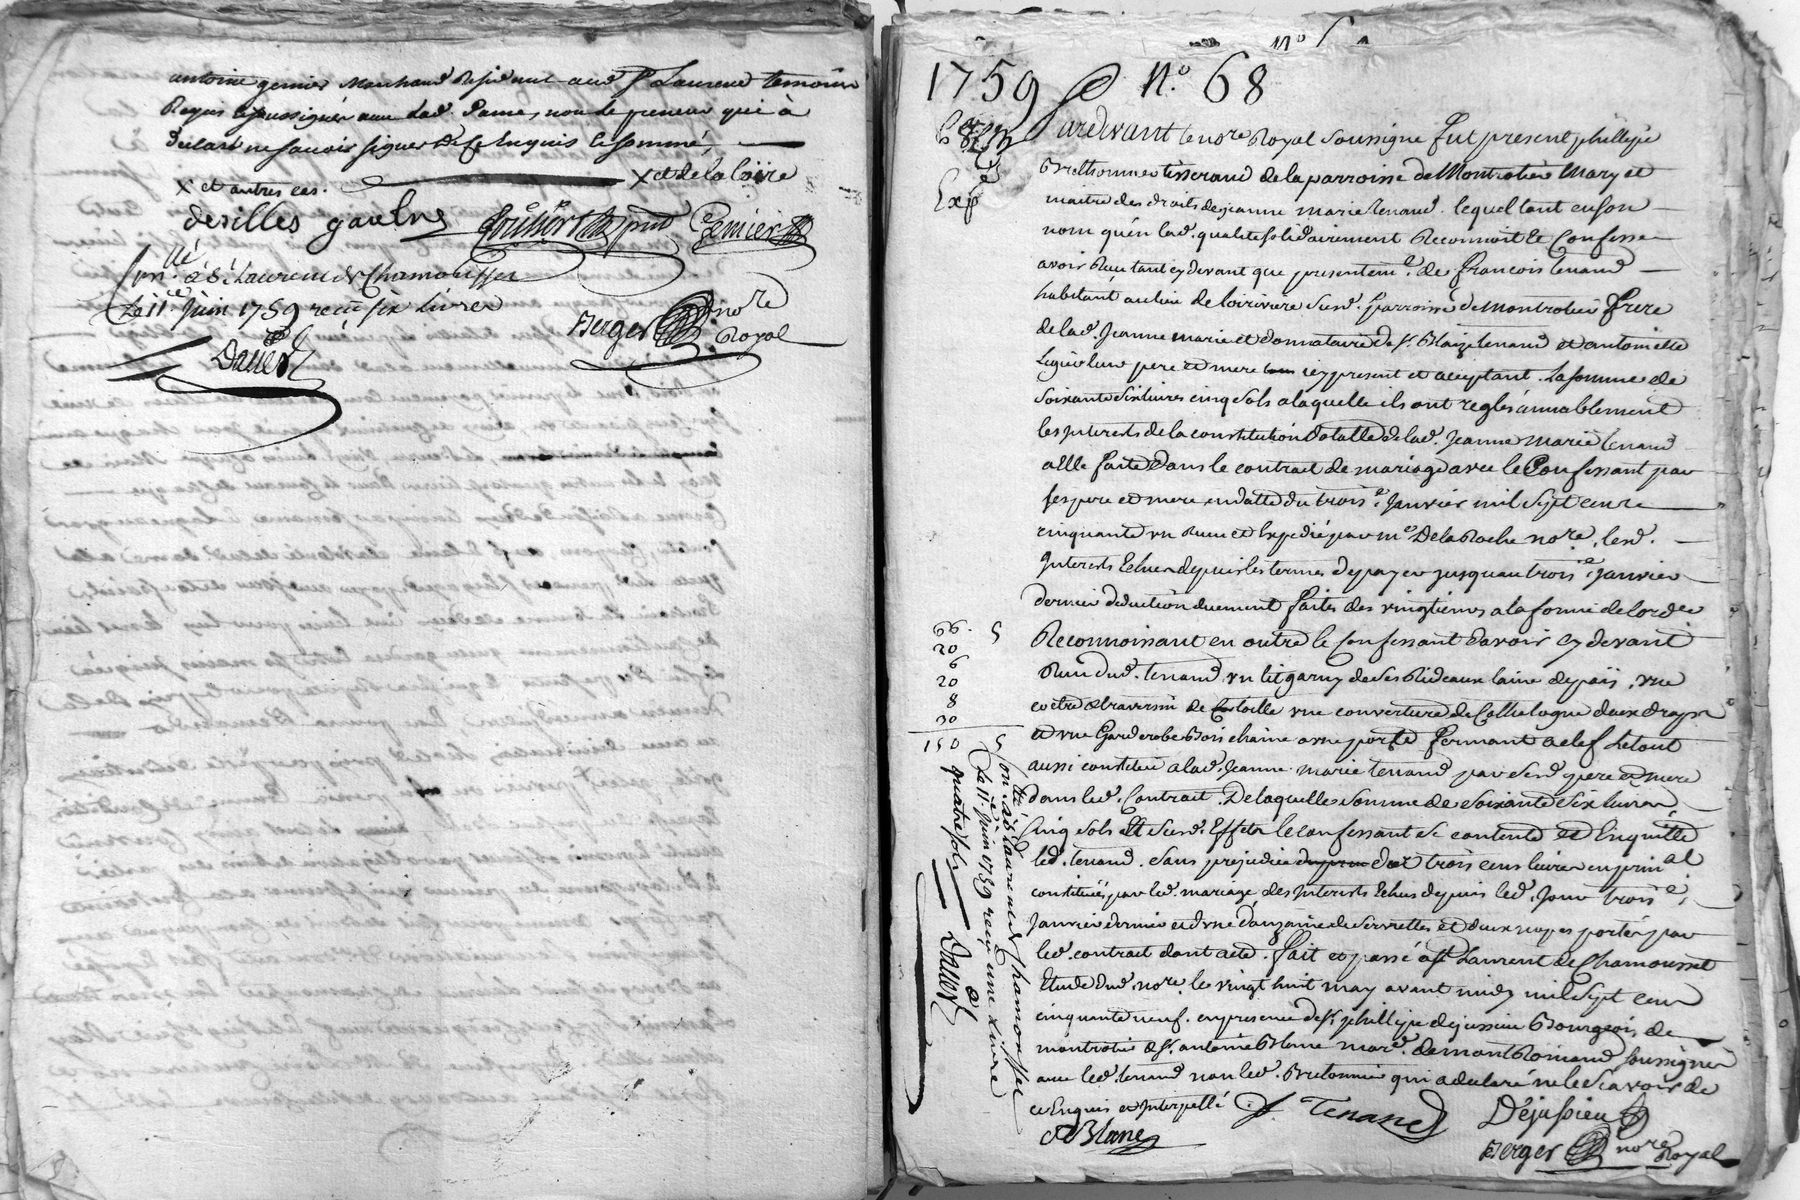 antoine genier marchand Residant aud. St. Laurend temoins
Requis Et soussignés avec lad. Dame, non le preneur qui à
declaré ne savoir signer de ce Enquis Et sommé,
X et autres cas. X et de la loire
desilles gaulne Genier
Con.llé à St. Laurent de Chamousset
Le 11.e Juin 1759 reçu six Livres
Berger no.re Royal
Dauer
n.o
1759 N.o 68
Exp.
Pardevant le no.re Royal soussigné fut present phillipe
Brethonnier tisserand de la parroisse de Montrotier Mary et
maitre des droits de jeanne marie tenand. lequel tant en son
nom qu'en lad. qualité solidairement Reconnoit Et Confesse
avoir Reçu tant cy devant que presentem.t de francois tenand
habitant au lieu de loirivière susd. parroisse de Montrotier frere
de lad. Jeanne marie et donnataire de Sr. Blaize tenand et antoinette
leurs pere et mere icy present et aceptant. la somme de
soixante six livres cinq sols a laquelle ils ont reglés amiablement
les jnterests de la constitution dotalle de lad. Jeanne Marie tenand
a Elle faite dans le contrat de mariage avec le Confessant par
ses pere et mere en datte du trois.e Janvier mil sept cent
cinquante un Reçu et Expedié par m.e Delaroche no.re, lesd.
Interests Echus depuis les termes de payer jusqu'au trois.e janvier
dernier deduction duement faites des vingtiemes a la forme de l'ord.ce
Reconnoissant en outre le Confessant d'avoir cy devant
Reçu dud. tenand un lit garny de ses Rideaux laine de païs, une
coëtre et traversin de toille une couverture de Cathalogne deux draps
et une Garderobe Bois chaine a une porte fermant a clef le tout
aussi constitué a lad. Jeanne marie tenand par sesd. pere et mere
dans led. Contrat. De laquelle somme de soixante six livres
Cinq sols Et susd. Effets le confessant se contente et En quitte
led. tenand. sans prejudice des trois cens livres en prin.al
constitués par led. mariage des Jnterests Echus depuis led. jour trois.e
Janvier dernier et d'une douzaine de serviettes et deux napes portés par
led. contrat dont acte. fait et passé a St. Laurent de Chamousset
Etude dud. no.re le vingt huit may avant midy mil sept cent
cinquante neuf. en presence de Sr. phillipe dejussieu Bourgeois de
montrotier et Sr. antoine Blanc mar.d de montRomand soussignés
avec led. tenand non led. Bretonnier qui a declaré ne le scavoir de
ce Enquis et Jnterpellé
f. Tenand Déjussieu
A Blanc
Berger no.re Royal
66. 5
20
6
20
8
30
150 5
Con.llé à St. Laurent de Chamousset
Le 11.e Juin 1759 reçu une Livre
quatre sols
Dauer